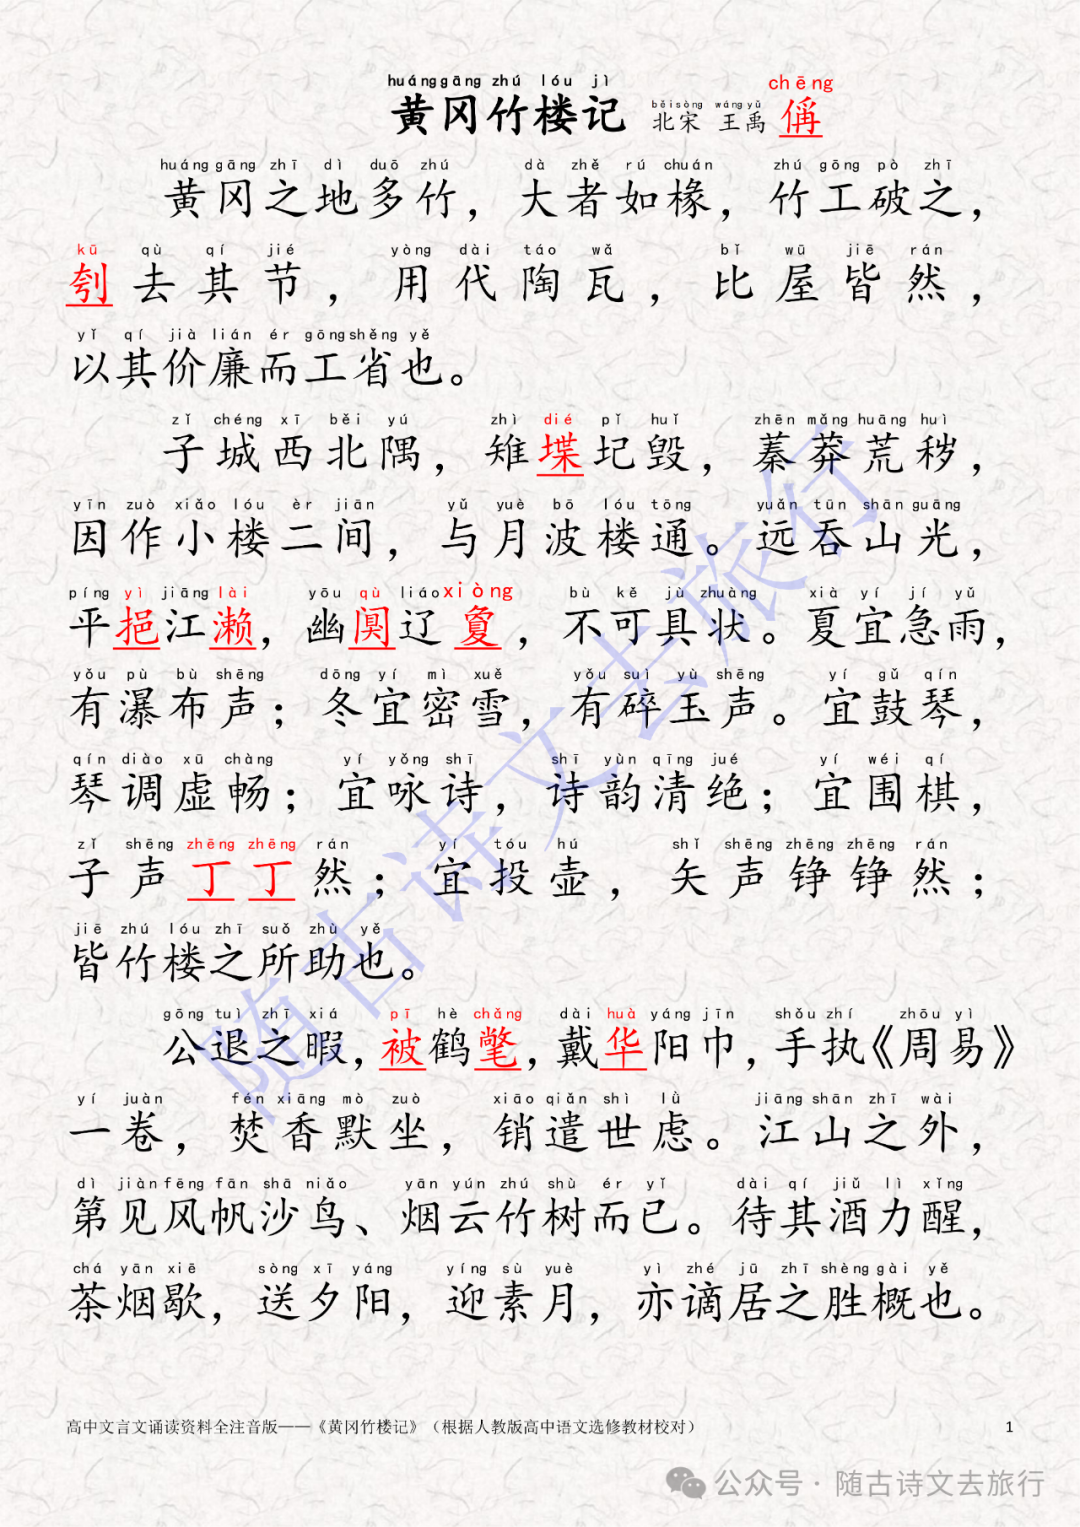 huánggāng zhú lóu jì
běisòng wángyǔ chēng
黄冈竹楼记 北宋 王禹偁
huánggāng zhī dì duō zhú dà zhě rú chuán zhú gōng pò zhī
黄冈之地多竹，大者如椽，竹工破之，
kū qù qí jié yòng dài táo wǎ bǐ wū jiē rán
刳去其节，用代陶瓦，比屋皆然，
yǐ qí jià lián ér gōngshěng yě
以其价廉而工省也。
zǐ chéng xī běi yú zhì dié pǐ huǐ zhēn mǎng huāng huì
子城西北隅，雉堞圮毁，蓁莽荒秽，
yīn zuò xiǎo lóu èr jiān yǔ yuè bō lóu tōng yuǎn tūn shān guāng
因作小楼二间，与月波楼通。远吞山光，
píng yì jiāng lài yōu qù liáo xiòng bù kě jù zhuàng xià yí jí yǔ
平挹江濑，幽阒辽夐，不可具状。夏宜急雨，
yǒu pù bù shēng dōng yí mì xuě yǒu suì yù shēng yí gǔ qín
有瀑布声；冬宜密雪，有碎玉声。宜鼓琴，
qín diào xū chàng yí yǒng shī shī yùn qīng jué yí wéi qí
琴调虚畅；宜咏诗，诗韵清绝；宜围棋，
zǐ shēng zhēng zhēng rán yí tóu hú shǐ shēng zhēng zhēng rán
子声丁丁然；宜投壶，矢声铮铮然；
jiē zhú lóu zhī suǒ zhù yě
皆竹楼之所助也。
gōng tuì zhī xiá pī hè chǎng dài huà yáng jīn shǒu zhí zhōu yì
公退之暇，被鹤氅，戴华阳巾，手执《周易》
yí juàn fén xiāng mò zuò xiāo qiǎn shì lǜ jiāng shān zhī wài
一卷，焚香默坐，销遣世虑。江山之外，
dì jiàn fēng fān shā niǎo yān yún zhú shù ér yǐ dài qí jiǔ lì xǐng
第见风帆沙鸟、烟云竹树而已。待其酒力醒，
chá yān xiē sòng xī yáng yíng sù yuè yì zhé jū zhī shèng gài yě
茶烟歇，送夕阳，迎素月，亦谪居之胜概也。
随古诗文去旅行
高中文言文诵读资料全注音版——《黄冈竹楼记》（根据人教版高中语文选修教材校对） 1
公众号·随古诗文去旅行